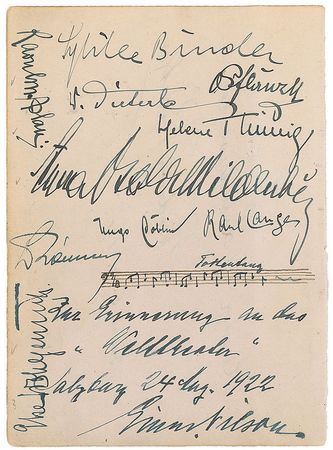 Sybille Binder
W. Dieterle
Helene Thimig
Anna Bahr-Mildenburg
Hugo Döblin Raul Lange
Totentanz
Zur Erinnerung an das
"Welttheater"
Salzburg 24 Aug. 1922
Einar Nilson.